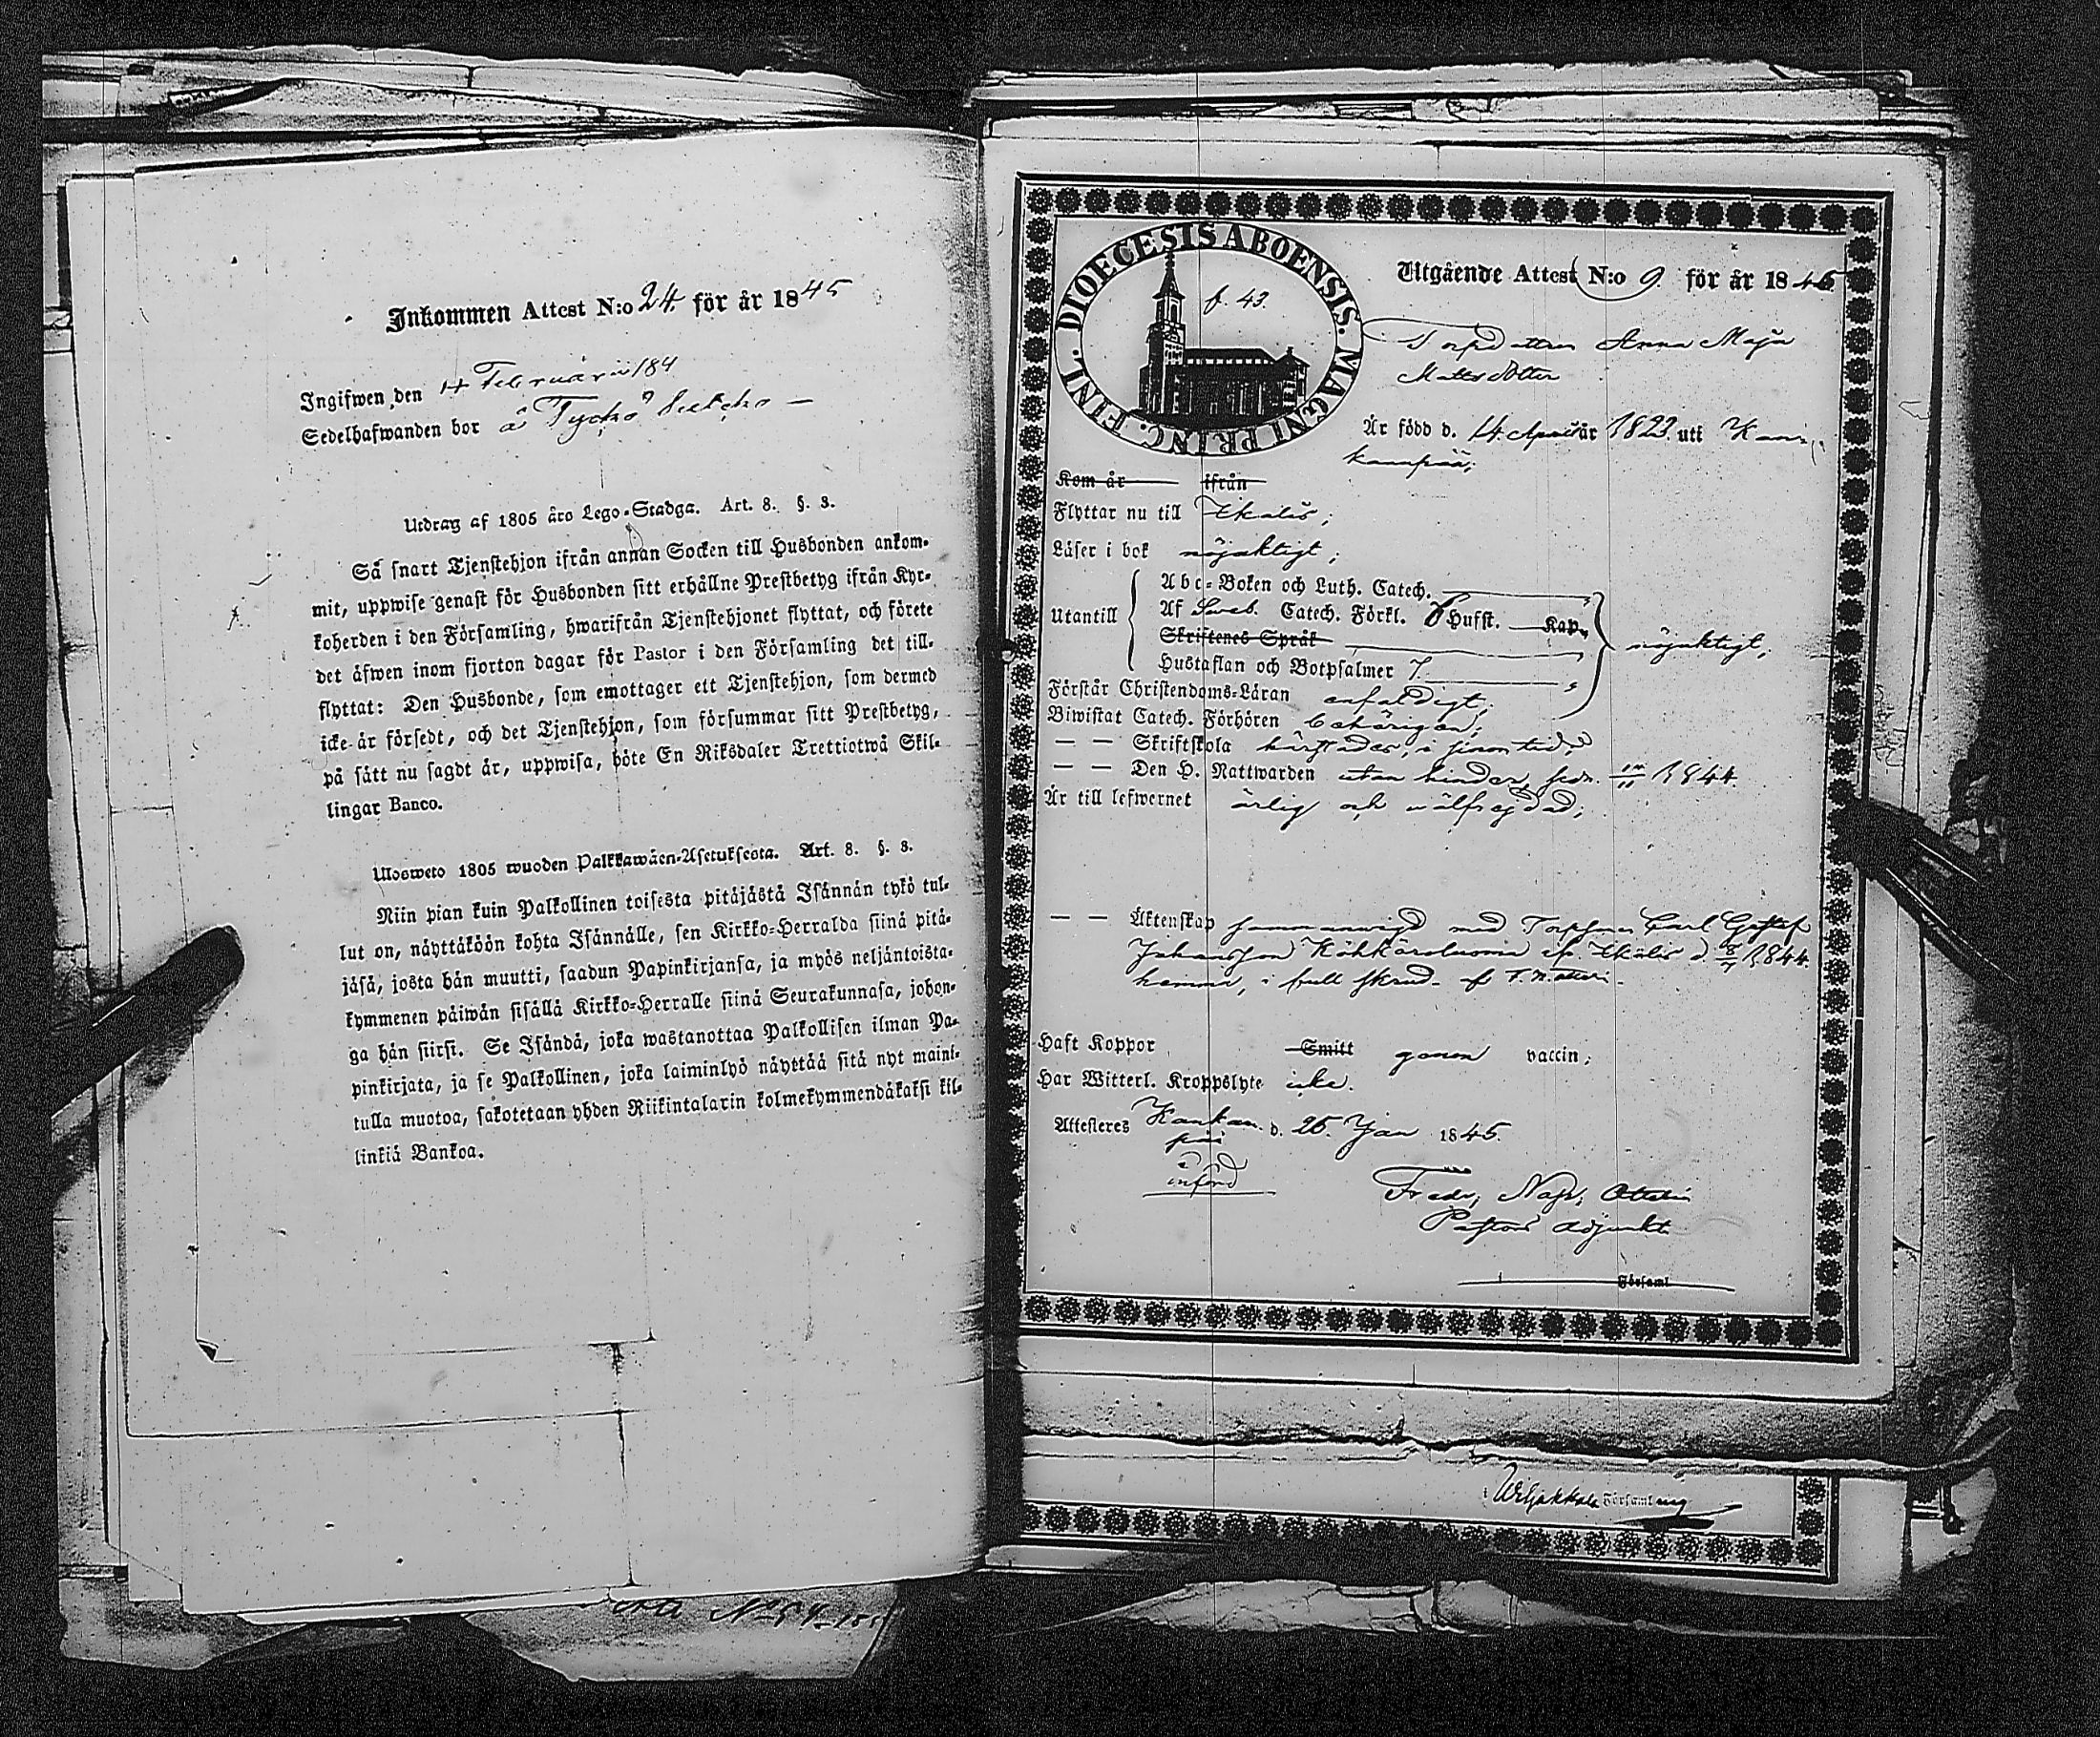 Inkommen Attest N:o 24. för år 1845
Ingifwen den 14 Februarii 184
Sedelhafwanden bor å Tyckö
Utdrag af 1805 års Lego-Stadga. Art. 8. §. 3.
Så snart Tjenstehjon ifrån annan Socken till Husbonden ankom-
mit, uppwise genast för Husbonden sitt erhållne Prestbetyg ifrån Kyr-
koherden i den Församling, hwarifrån Tjenstehjonet flyttat, och förete
det äfwen inom fjorton dagar för Pastor i den Församling det till-
flyttat: Den Husbonde, som emottager ett Tjenstehjon, som dermed
icke är försedt, och det Tjenstehjon, som försummar sitt Prestbetyg,
på sätt nu sagdt är, uppwisa, böte En Riksdaler Trettiotwå Skil-
lingar Banco.
Ulosweto 1805 wuoden Palkkawäen-Asetuksesta. Art. 8. §. 3.
Niin pian kuin Palkollinen toisesta pitäjästä Isännän tykö tul-
lut on, näyttäköön kohta Isännälle, sen Kirkko-Herralda siinä pitä-
jäsä, josta hän muutti, saadun Papinkirjansa, ja myös neljäntoista-
kymmenen päiwän sisällä Kirkko-Herralle siinä Seurakunnasa, johon-
ga hän siirst. Se Isändä, joka wastanottaa Palkollisen ilman Pa-
pinkirjata, ja se Palkollinen, joka laiminlyö näyttää sitä nyt maini-
tulla muotoa, sakotetaan yhden Riikintalarin kolmekymmendäkaksi kil-
linkiä Bankoa.
N:o 54
DIOECESIS ABOENSIS. MAGNI PRINC. FINL.
f. 43.
Utgående Attest N:o 9. för år 1845
Torpd Anna Maja
Matts dotter
Är född d. 14 April år 1823. uti Kan
kanpää;
Kom år ifrån
Flyttar nu till Ikalis;
Läser i bok nöjaktigt;
Utantill
Abc-Boken och Luth. Catech.
Af Sweb. Catech. Förkl. 6 Hufst. Kap.
Skriftenes Språk
Hustaflan och Botpsalmer 7.
nöjaktigt;
Förstår Christendoms-Läran enfaldigt;
Biwistat Catech. Förhören behörigen;
— — Skriftskola härstädes, i sinom tid
— — Den H. Nattwarden utan hinder, sedn. 1844.
Är till lefwernet ärlig och wälfrejdad;
— — Äktenskap sammanwigd med Torpson Carl Gustaf
Johansson ifr. Ikalis d. 1844.
hemma, i full skrud.
Haft Koppor Smitt genom vaccin;
Har Witterl. Kroppslyte icke.
Attesteres Kankan- d. 25. Jan 1845.
pää
införd
Fredr,
Pastors adjunkt
Församl
i Wiljakkala Församling